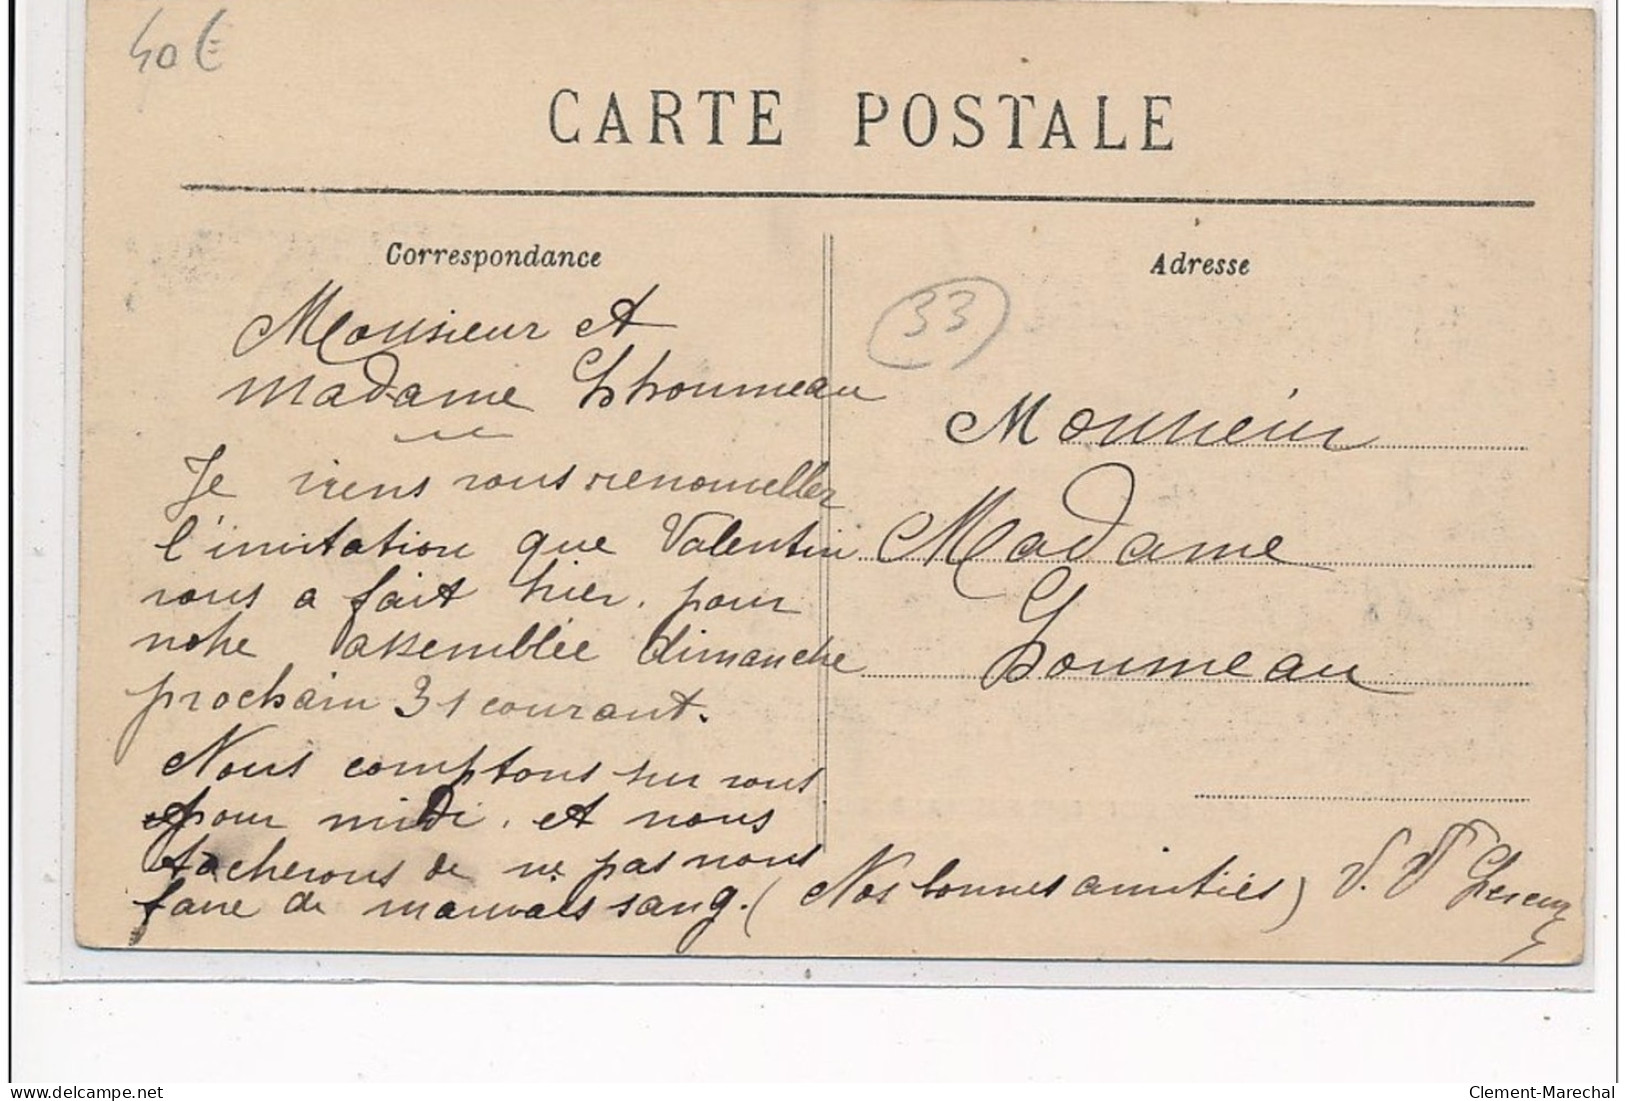 40€
CARTE POSTALE
Correspondance
Adresse
33
Monsieur et
Madame Lhoumeau
Je viens vous renouveller
l'invitation que Valentin
vous a fait hier. pour
notre assemblée dimanche
prochain 31 courant.
Nous comptons sur vous
pour midi. et nous
tacherons de ne pas nous
faire de mauvais sang. (Nos bonnes amitiés) V.
Monsieur
Madame
Loumeau
delcampe.net
Clement-Marechal